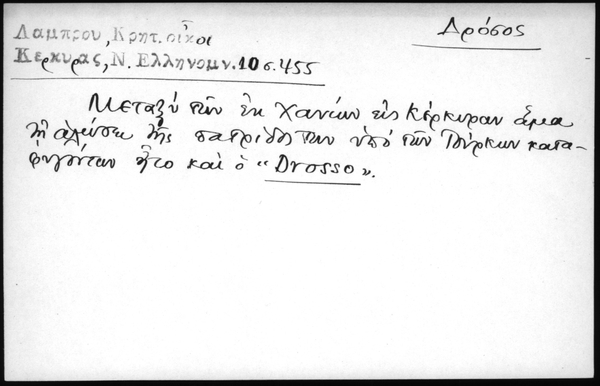 Λαμπρου, Κρητ. οἶκοι
Κερκυρας, Ν. Ελληνομν. 10 σ. 455
Δρόσος
Μεταξύ τῶν ἐκ Χανίων εἰς Κέρκυραν ἅμα
τῇ ἁλώσει τῆς πατρίδος των ὑπό τῶν Τούρκων κατα-
φυγόντων ἦτο καί ὁ "Drosso".